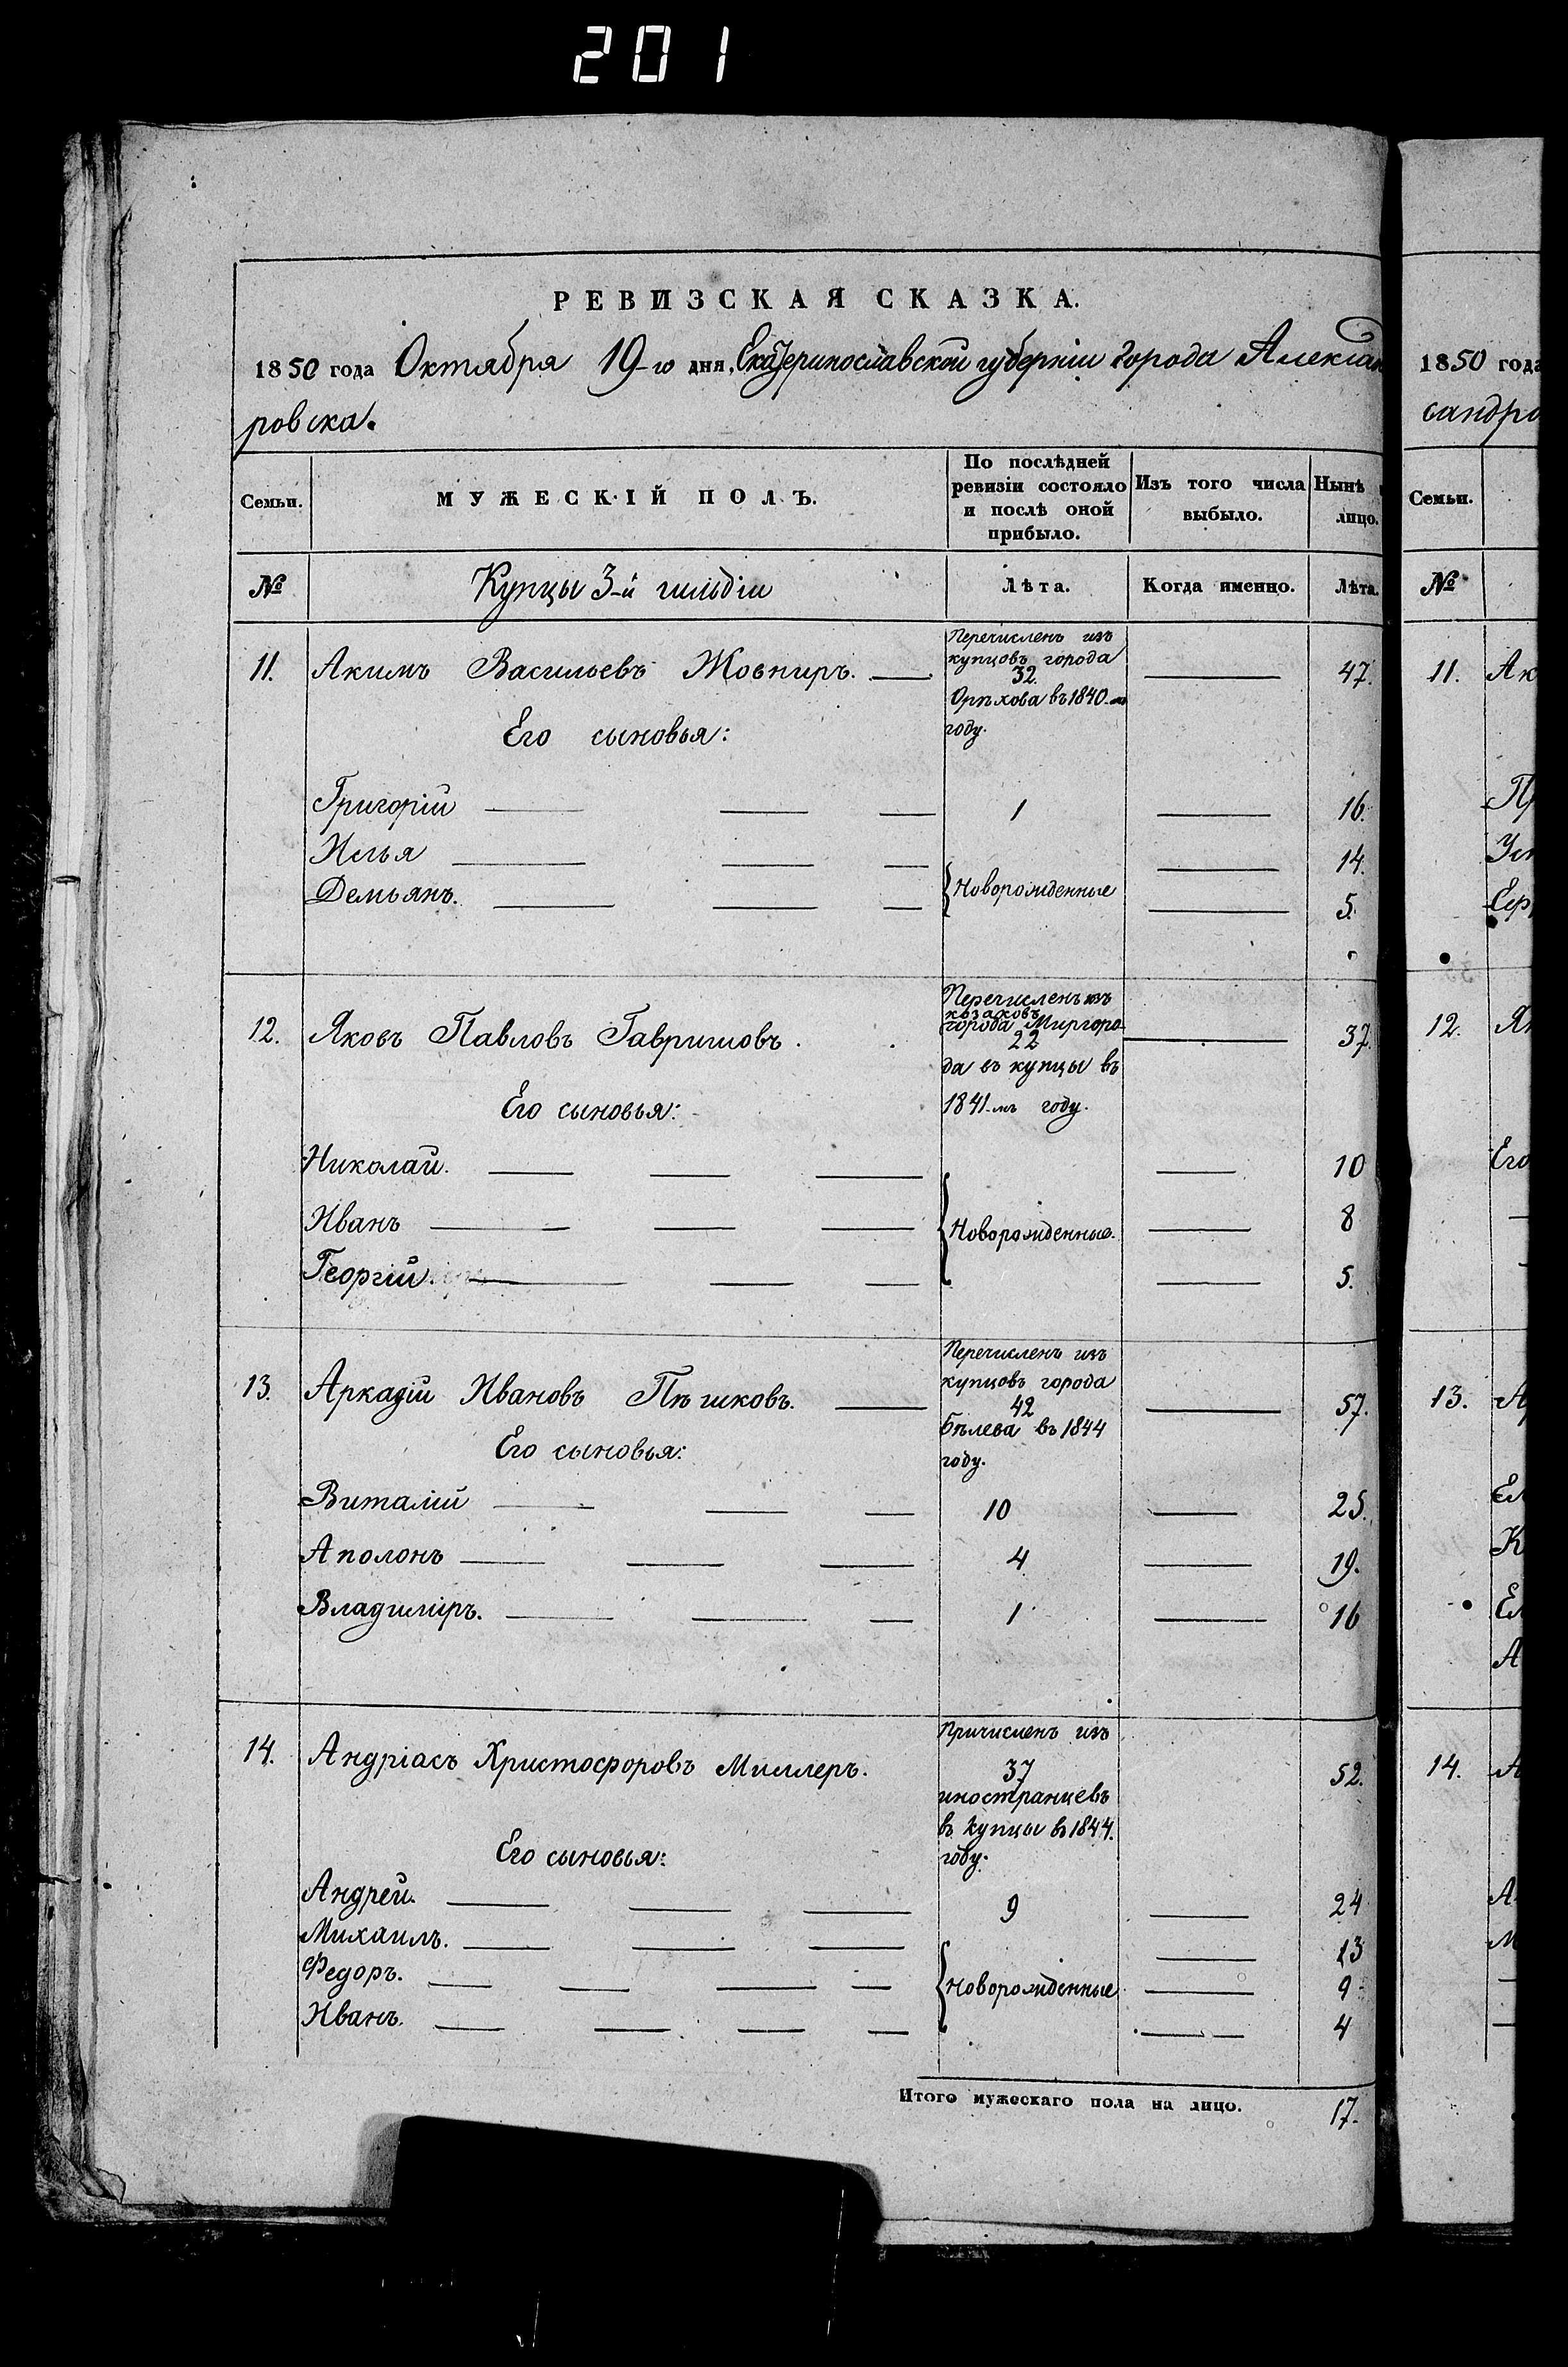 201
РЕВИЗСКАЯ СКАЗКА.
1850 года Октября 19-го дня, Екатеринославской губерніи города Алексан
ровска.
Семьи.
МУЖЕСКІЙ ПОЛЪ.
По послѣдней
ревизіи состояло
и послѣ оной
прибыло.
Изъ того числа
выбыло.
Нынѣ
лицо.
№
Купцы 3-й гильдіи
Лѣта.
Когда именно.
Лѣта.
11. Акимъ Васильевъ Жовниръ. 47.
Перечисленъ изъ
купцовъ города
32
Орѣхова въ 1840-мъ
году.
Его сыновья:
Григорій 1 16.
Илья 14.
Демьянъ. 5.
Новорожденные
12. Яковъ Павловъ Гавришовъ. 37.
Перечисленъ изъ
козаковъ
города Миргоро-
22
да въ купцы въ
1841-мъ году.
Его сыновья:
Николай. 10
Иванъ 8
Георгій. 5.
Новорожденные.
13. Аркадій Ивановъ Пѣшковъ. 57.
Перечисленъ изъ
купцовъ города
42
Бѣлева въ 1844
году.
Его сыновья:
Виталій 10 25.
Аполонъ 4 19.
Владиміръ. 1 16
14. Андріасъ Христофоровъ Миллеръ. 52.
Причисленъ изъ
37
иностранцевъ
въ купцы въ 1844.
году.
Его сыновья:
Андрей. 9 24
Михаилъ. 13
Федоръ. 9
Иванъ. 4
Новорожденные
Итого мужескаго пола на лицо. 17.
1850 года
сандро
Семьи.
№
11. Ак
Ер
12. Як
Его
13. А
Ел
К
Ел
А
14. А
А
М